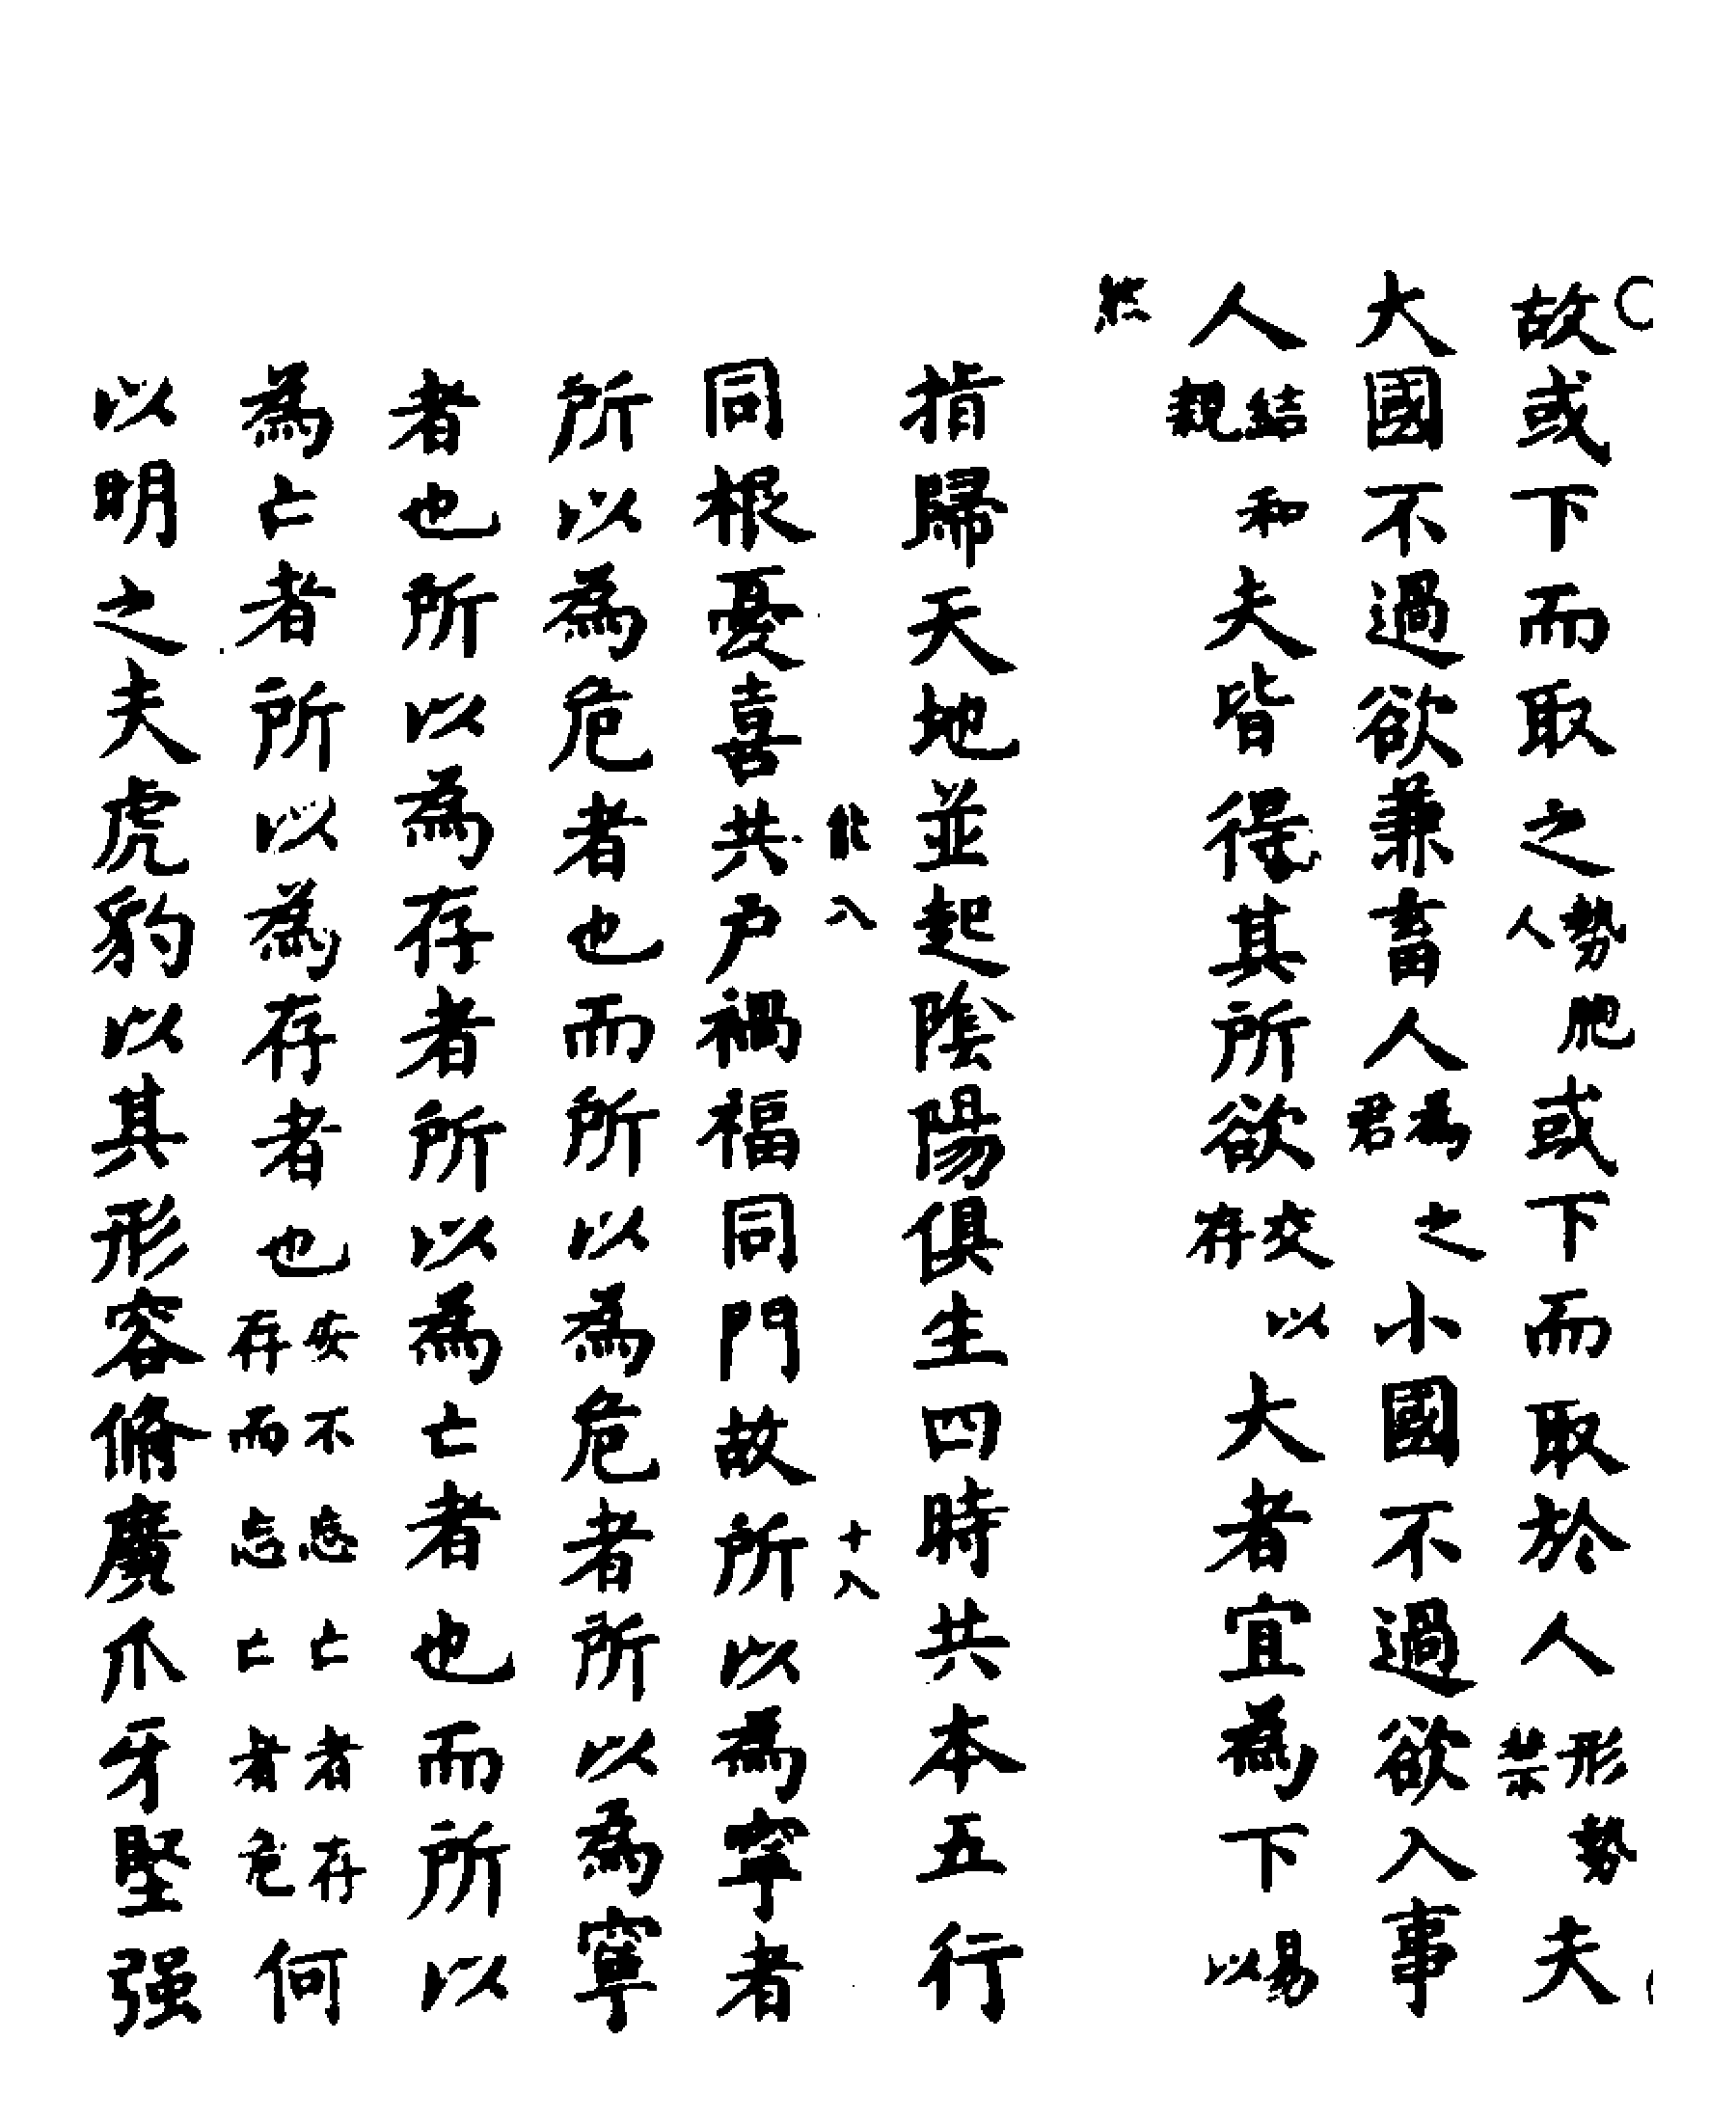 故或下而取之勢胞人或下而取於人形勢禁夫
大國不過欲兼畜人為之君小國不過欲入事
人結和親夫皆得其所欲交以存大者宜為下易以
然
指歸天地並起陰陽俱生四時共本五行
同根憂喜共户禍福同門故所以為寧者
所以為危者也而所以為危者所以為寧
者也所以為存者所以為亡者也而所以
為亡者所以為存者也安不忘亡者存存而忘亡者危何
以明之夫虎豹以其形容脩廣爪牙堅强